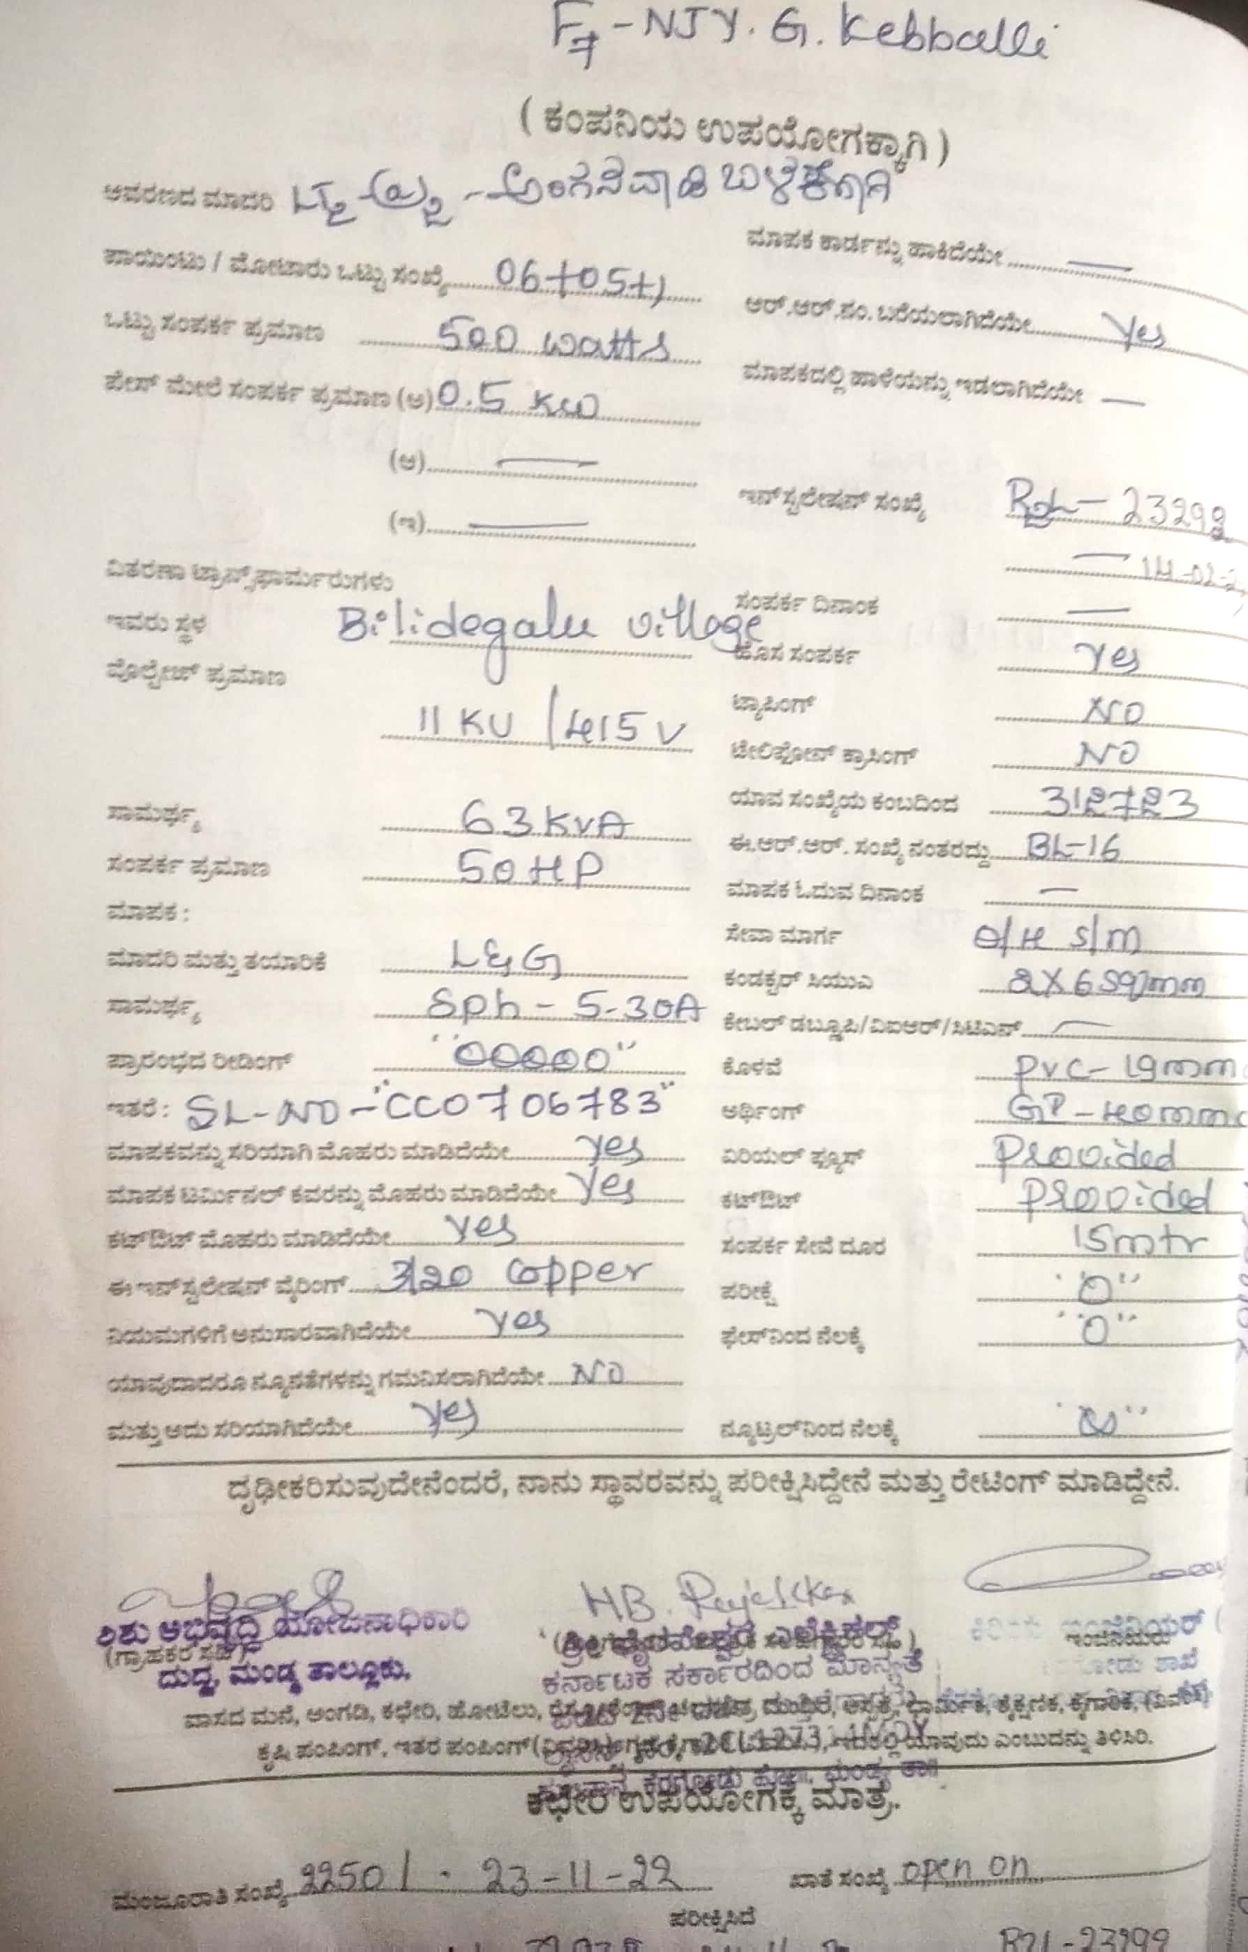 F7-NJY. G. Kebballi
( ಕಂಪನಿಯ ಉಪಯೋಗಕ್ಕಾಗಿ )
ಆವರಣದ ಮಾದರಿ - ಅಂಗನವಾಡಿ ಬಳಕೆಗಾಗಿ
ಮಾಪಕ ಕಾರ್ಡನ್ನು ಹಾಕಿದೆಯೇ —
ಪಾಯಿಂಟು / ಮೋಟಾರು ಒಟ್ಟು ಸಂಖ್ಯೆ 06+05+1
ಆರ್.ಆರ್.ನಂ. ಬರೆಯಲಾಗಿದೆಯೇ Yes
ಒಟ್ಟು ಸಂಪರ್ಕ ಪ್ರಮಾಣ 500 watts
ಮಾಪಕದಲ್ಲಿ ಹಾಳೆಯನ್ನು ಇಡಲಾಗಿದೆಯೇ —
ಪೇಸ್ ಮೇಲೆ ಸಂಪರ್ಕ ಪ್ರಮಾಣ (ಅ) 0.5 KW
(ಆ) —
ಇನ್‌ಸ್ಟಲೇಷನ್ ಸಂಖ್ಯೆ
(ಇ) —
ವಿತರಣಾ ಟ್ರಾನ್ಸ್‌ಫಾರ್ಮರುಗಳು
ಸಂಪರ್ಕ ದಿನಾಂಕ —
ಇವರು ಸ್ಥಳ Bilidegalu village
ಹೊಸ ಸಂಪರ್ಕ Yes
ವೊಲ್ಟೇಜ್ ಪ್ರಮಾಣ 11 KV / 415 V
ಟ್ಯಾಪಿಂಗ್ NO
ಟೇಲಿಫೋನ್ ಕ್ರಾಸಿಂಗ್ NO
ಯಾವ ಸಂಖ್ಯೆಯ ಕಂಬದಿಂದ 312723
ಸಾಮರ್ಥ್ಯ 63 KVA
ಈ.ಆರ್.ಆರ್. ಸಂಖ್ಯೆ ನಂತರದ್ದು BL-16
ಸಂಪರ್ಕ ಪ್ರಮಾಣ 50 HP
ಮಾಪಕ ಓದುವ ದಿನಾಂಕ —
ಮಾಪಕ :
ಸೇವಾ ಮಾರ್ಗ O/H S/M
ಮಾದರಿ ಮತ್ತು ತಯಾರಿಕೆ L&G
ಕಂಡಕ್ಟರ್ ಸಿಯುಎ 2X6 Sqmm
ಸಾಮರ್ಥ್ಯ Sph - 5-30A
ಕೇಬಲ್ ಡಬ್ಲ್ಯೂಪಿ/ವಿಐಆರ್/ಸಿಟಿಎಸ್ —
ಪ್ರಾರಂಭದ ರೀಡಿಂಗ್ "00000"
ಕೊಳವೆ PVC- 19mm
ಇತರೆ : SL-NO-"CC0706783"
ಅರ್ಥಿಂಗ್ GP-40mm
ಮಾಪಕವನ್ನು ಸರಿಯಾಗಿ ಮೊಹರು ಮಾಡಿದೆಯೇ Yes
ಏರಿಯಲ್ ಫ್ಯೂಸ್ Provided
ಮಾಪಕ ಟರ್ಮಿನಲ್ ಕವರನ್ನು ಮೊಹರು ಮಾಡಿದೆಯೇ Yes
ಕಟ್‌ಔಟ್ Provided
ಕಟ್‌ಔಟ್ ಮೊಹರು ಮಾಡಿದೆಯೇ Yes
ಸಂಪರ್ಕ ಸೇವೆ ದೂರ 15mtr
ಈ ಇನ್‌ಸ್ಟಲೇಷನ್ ವೈರಿಂಗ್ 3/20 Copper
ಪರೀಕ್ಷೆ "0"
ನಿಯಮಗಳಿಗೆ ಅನುಸಾರವಾಗಿದೆಯೇ Yes
ಫೇಸ್‌ನಿಂದ ನೆಲಕ್ಕೆ "0"
ಯಾವುದಾದರೂ ನ್ಯೂನತೆಗಳನ್ನು ಗಮನಿಸಲಾಗಿದೆಯೇ NO
ಮತ್ತು ಅದು ಸರಿಯಾಗಿದೆಯೇ Yes
ನ್ಯೂಟ್ರಲ್‌ನಿಂದ ನೆಲಕ್ಕೆ
ದೃಢೀಕರಿಸುವುದೇನೆಂದರೆ, ನಾನು ಸ್ಥಾವರವನ್ನು ಪರೀಕ್ಷಿಸಿದ್ದೇನೆ ಮತ್ತು ರೇಟಿಂಗ್ ಮಾಡಿದ್ದೇನೆ.
ಶಿಶು ಅಭಿವೃದ್ಧಿ ಯೋಜನಾಧಿಕಾರಿ
(ಗ್ರಾಹಕರ ಸಹಿ)
ದುದ್ದ, ಮಂಡ್ಯ ತಾಲ್ಲೂಕು.
ಕರ್ನಾಟಕ ಸರ್ಕಾರದಿಂದ ಮಾನ್ಯತೆ
ವಾಸದ ಮನೆ, ಅಂಗಡಿ, ಕಛೇರಿ, ಹೋಟೆಲು, ಧಾರ್ಮಿಕ, ಶೈಕ್ಷಣಿಕ, ಕೈಗಾರಿಕೆ,
ಕೃಷಿ ಪಂಪಿಂಗ್, ಇತರ ಪಂಪಿಂಗ್ ಯಾವುದು ಎಂಬುದನ್ನು ತಿಳಿಸಿರಿ.
ಕಛೇರಿ ಉಪಯೋಗಕ್ಕೆ ಮಾತ್ರ.
ಮಂಜೂರಾತಿ ಸಂಖ್ಯೆ 22501 . 23-11-22
ಖಾತೆ ಸಂಖ್ಯೆ open on
ಪರೀಕ್ಷಿಸಿದೆ